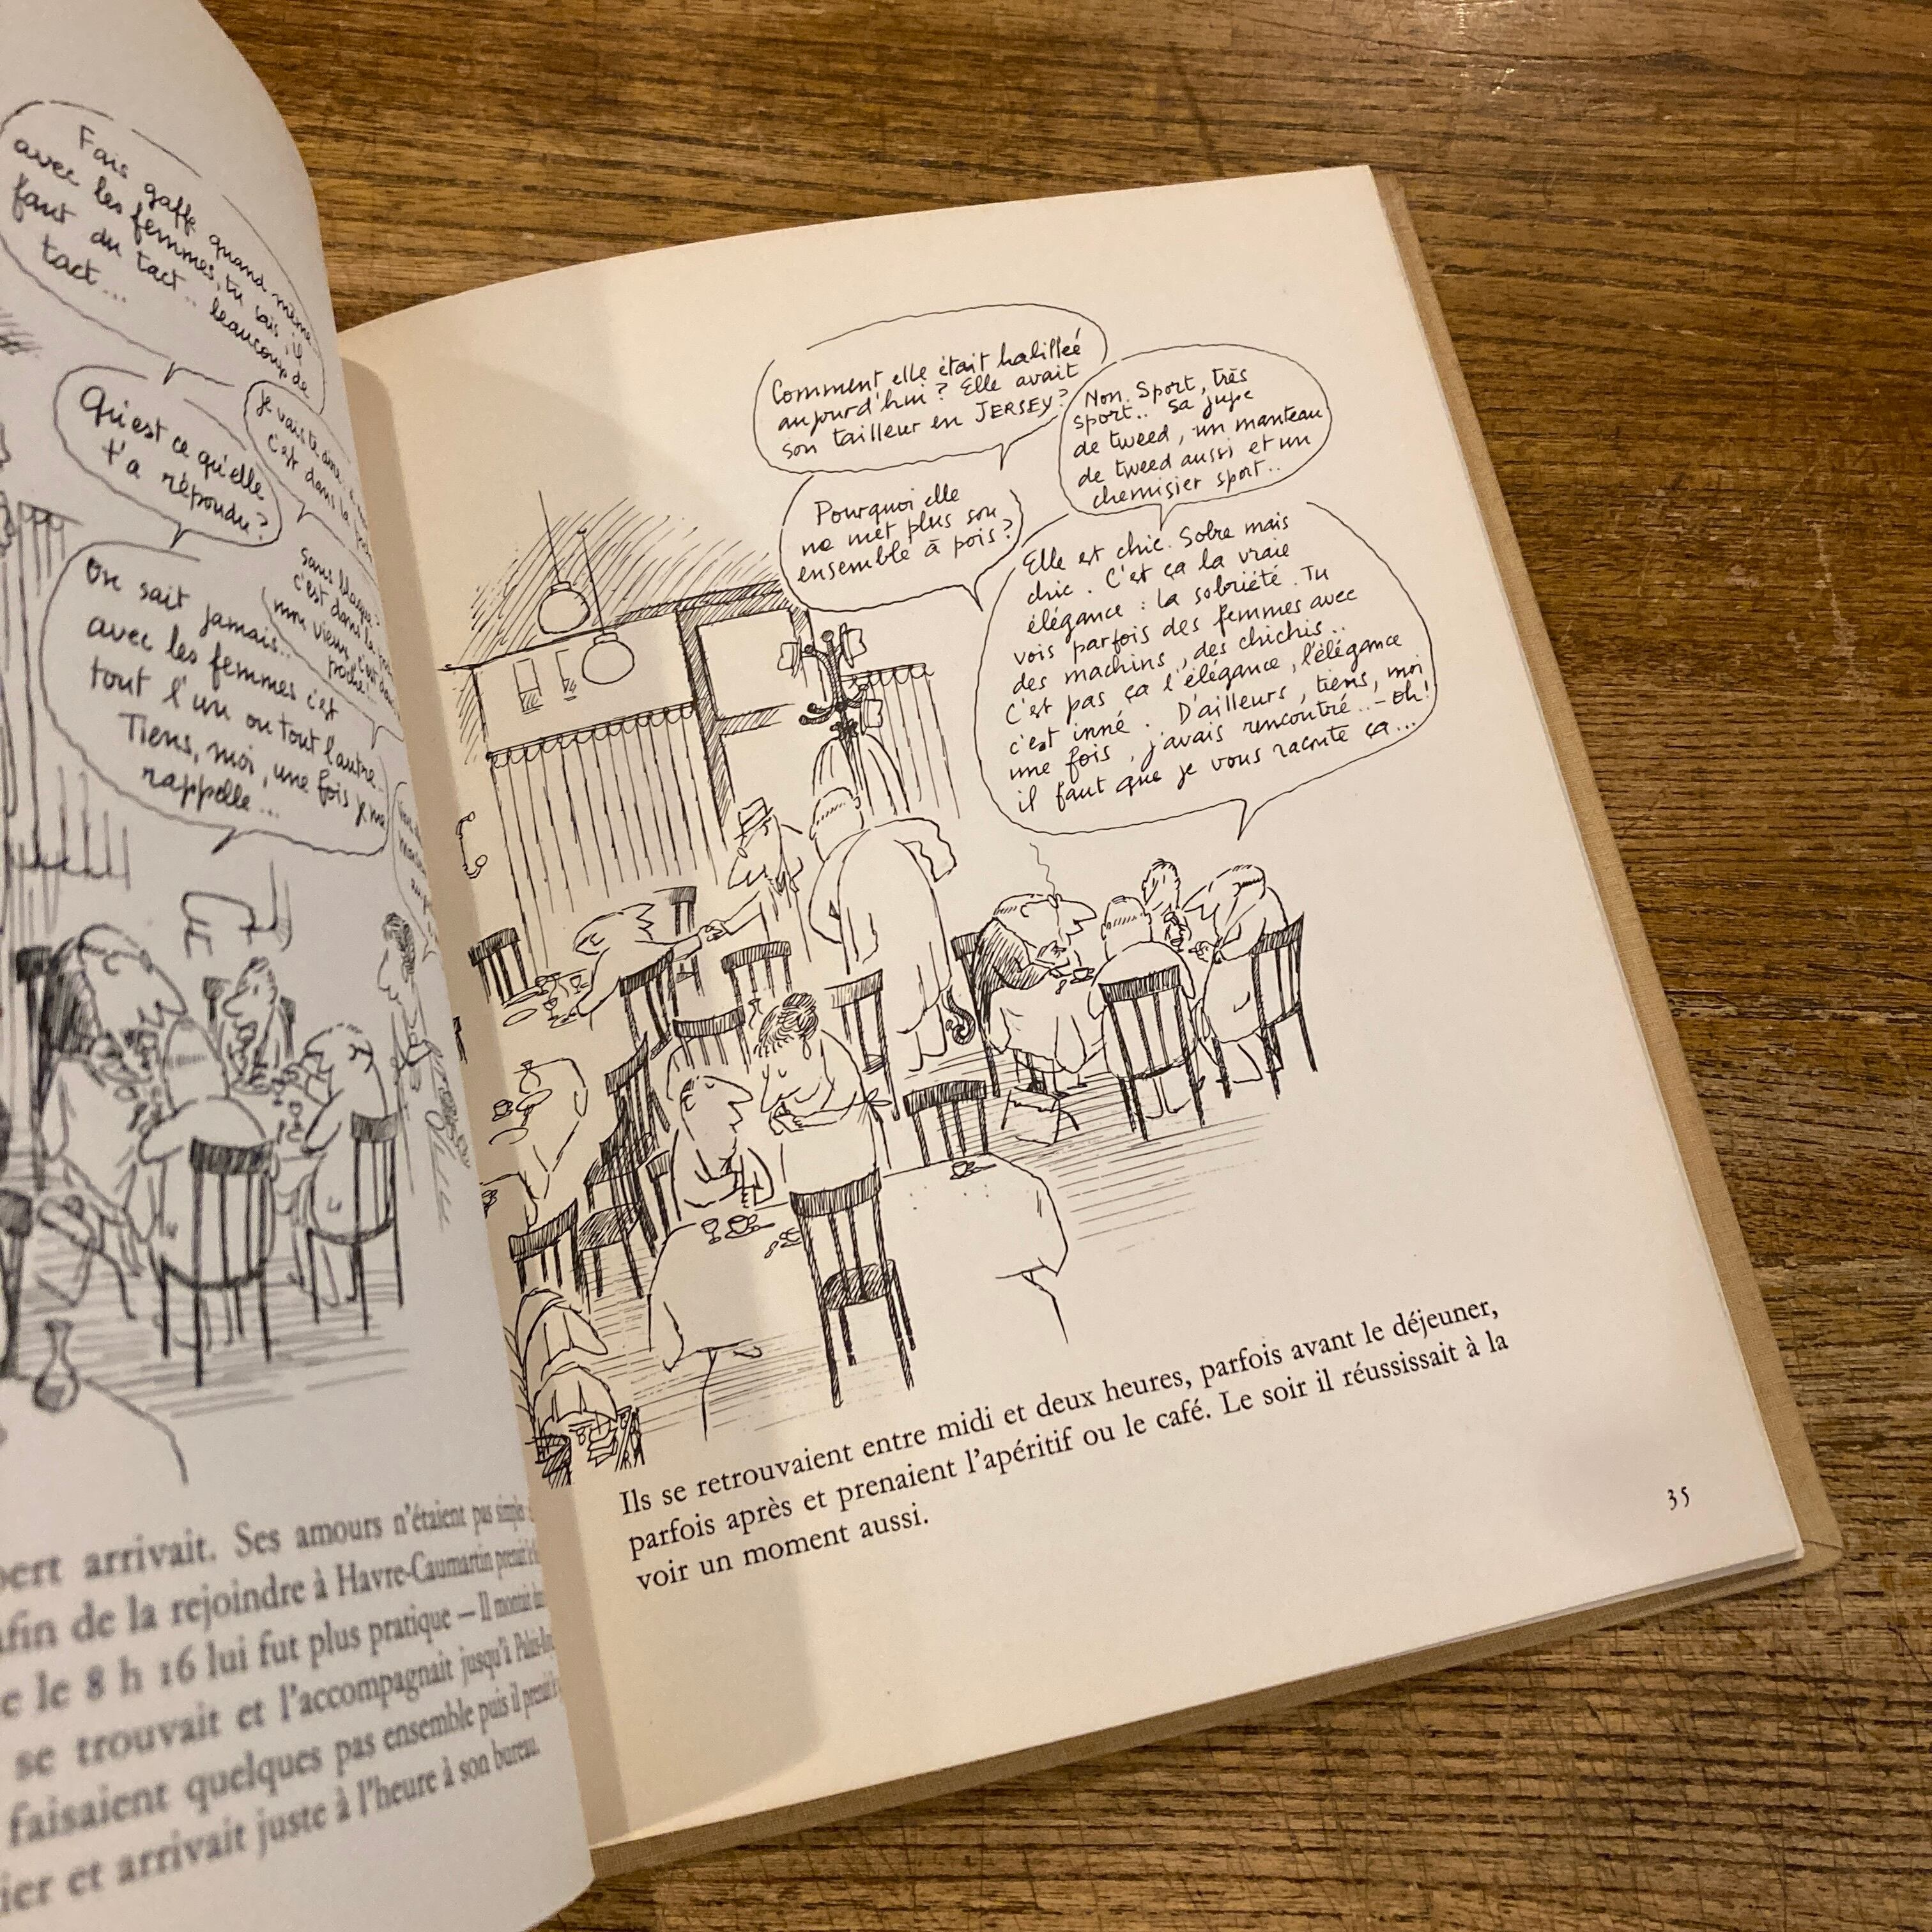 Fais gaffe quand même
avec les femmes, tu sais, il
faut du tact.. beaucoup de
tact...
Qu'est ce qu'elle
t'a répondu?
je vais te dire
c'est dans la
sans blague:
c'est dans la
mon vieux c'est dans
poche!
On sait jamais..
avec les femmes c'est
tout l'un ou tout l'autre..
Tiens, moi, une fois je me
rappelle...
bert arrivait. Ses amours n'étaient pas simples
afin de la rejoindre à Havre-Caumartin prenait
e le 8 h 16 lui fut plus pratique — Il montait
se trouvait et l'accompagnait jusqu'à
faisaient quelques pas ensemble puis il prenait
ier et arrivait juste à l'heure à son bureau.
Comment elle était habillée
aujourd'hui? Elle avait
son tailleur en JERSEY?
Non. Sport, très
sport.. Sa jupe
de tweed, un manteau
de tweed aussi et un
chemisier sport..
Pourquoi elle
ne met plus son
ensemble à pois?
Elle est chic. Sobre mais
chic. C'est ça la vraie
élégance: la sobriété. Tu
vois parfois des femmes avec
des machins, des chichis..
C'est pas ça l'élégance, l'élégance
c'est inné. D'ailleurs, tiens, moi
une fois, j'avais rencontré..- Oh!
il faut que je vous raconte ça...
Ils se retrouvaient entre midi et deux heures, parfois avant le déjeuner,
parfois après et prenaient l'apéritif ou le café. Le soir il réussissait à la
voir un moment aussi.
35